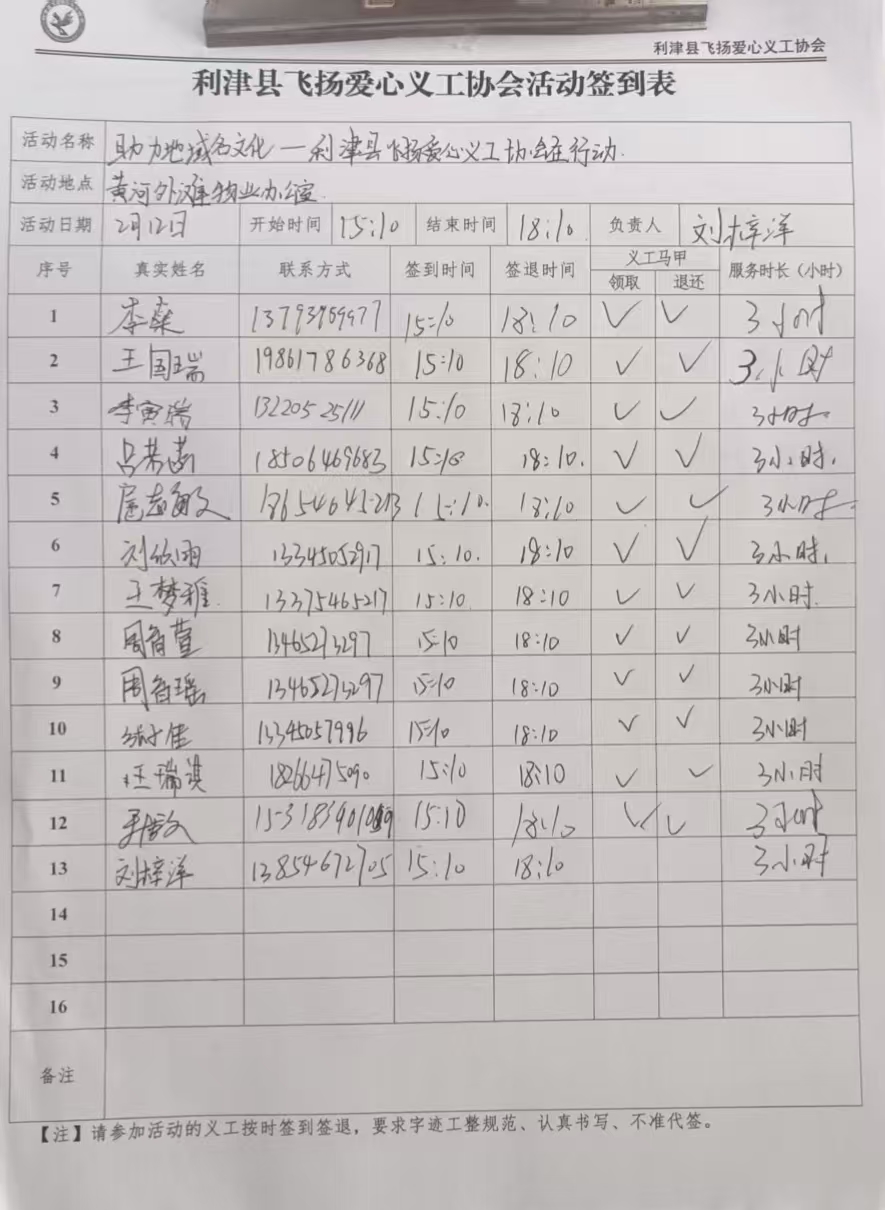 利津县飞扬爱心义工协会
利津县飞扬爱心义工协会活动签到表
活动名称 助力地域名文化—利津县飞扬爱心义工协会在行动.
活动地点 黄河外滩物业办公室.
活动日期 2月12日 开始时间 15:10 结束时间 18:10. 负责人 刘梓洋
序号 真实姓名 联系方式 签到时间 签退时间 义工马甲 服务时长（小时）
领取 退还
1 李燊 15:10 18:10 ✓ ✓ 3小时
2 王国瑞 19861786368 15:10 18:10 ✓ ✓ 3小时
3 李寅瑞 13220525111 15:10 18:10 ✓ ✓ 3小时.
4 18506469683 15:10 18:10. ✓ ✓ 3小时.
5 18654645213 15:10. 18:10 ✓ ✓ 3小时.
6 刘欣雨 13345052917 15:10. 18:10 ✓ ✓ 3小时.
7 王梦雅. 13375465217 15:10. 18:10 ✓ ✓ 3小时.
8 周智萱 13465273297 15:10 18:10 ✓ ✓ 3小时
9 周智瑶 13465273297 15:10 18:10 ✓ ✓ 3小时
10 13345057996 15:10 18:10 ✓ ✓ 3小时
11 汪瑞淇 18266475090 15:10 18:10 ✓ ✓ 3小时
12 15:10 18:10 ✓ ✓ 3小时
13 刘梓洋 13854672705 15:10 18:10 3小时
14
15
16
备注
【注】请参加活动的义工按时签到签退，要求字迹工整规范、认真书写、不准代签。